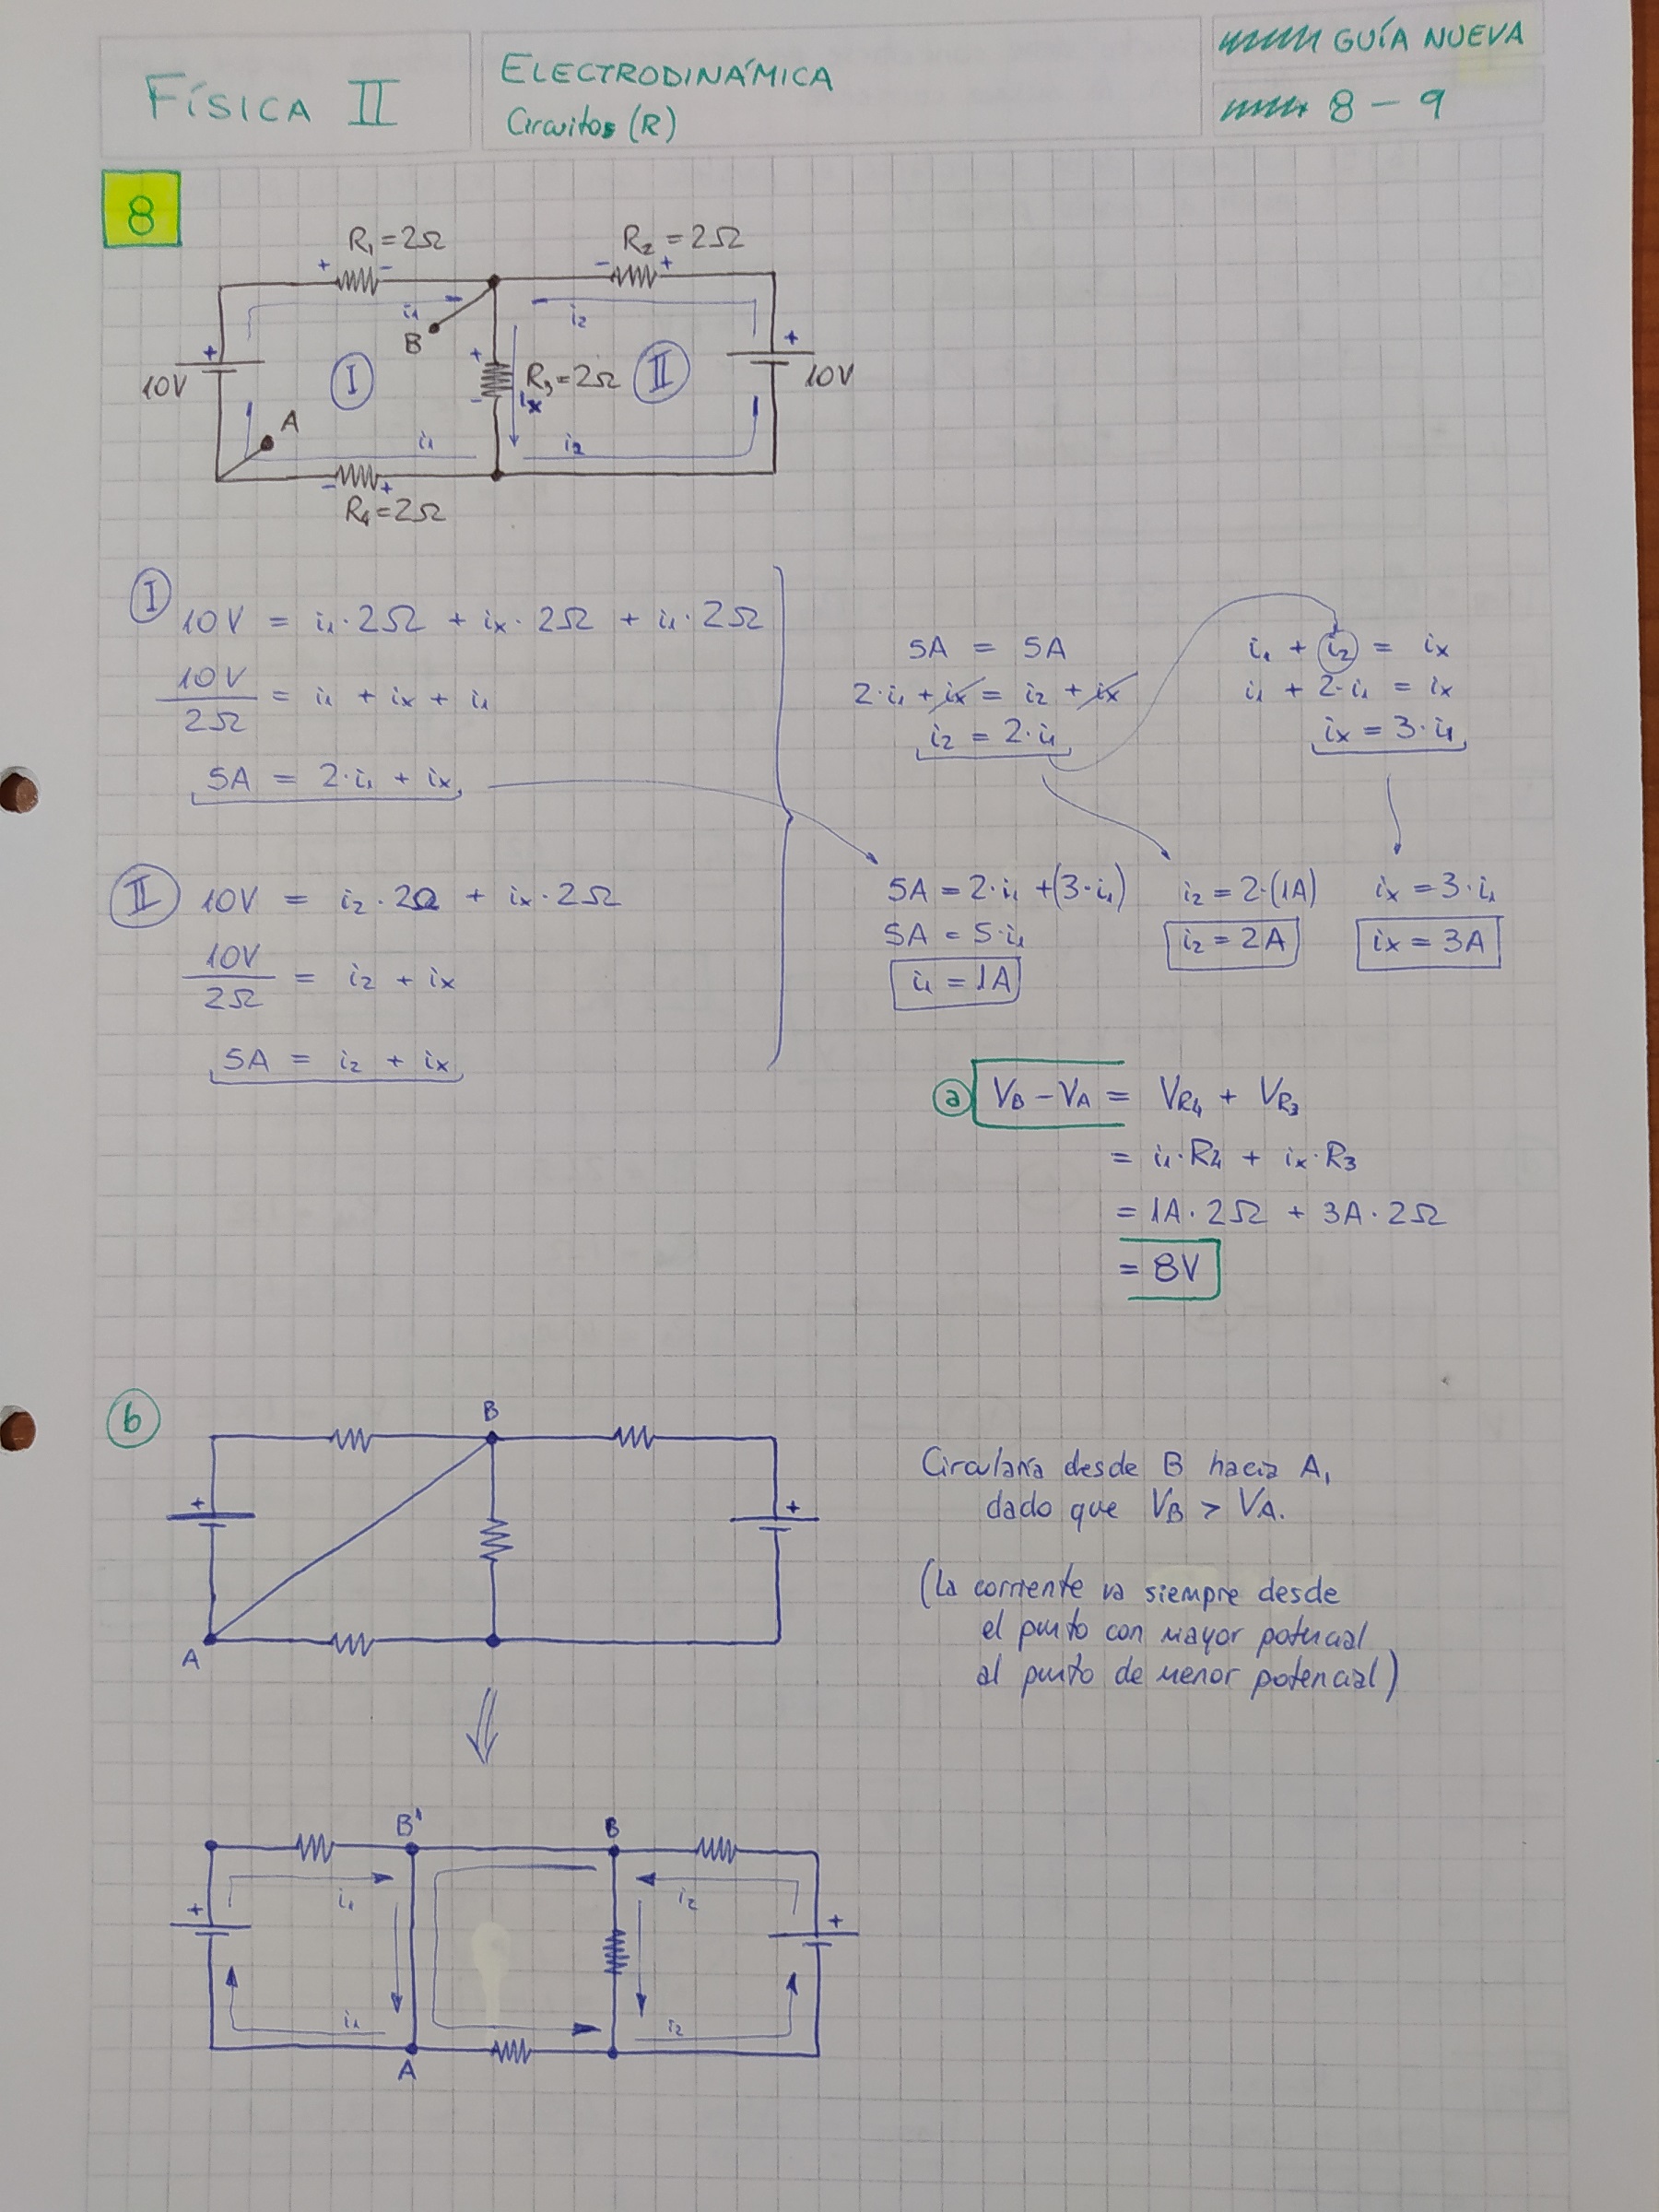 FÍSICA II
ELECTRODINÁMICA
Circuitos (R)
GUÍA NUEVA
8 - 9
8
R₁ = 2Ω
R₂ = 2Ω
+ -
- +
i₁
i₂
B
+
I
+
R₃ = 2Ω
II
+
10V
-
ix
10V
A
i₁
i₂
- +
R₄ = 2Ω
I
10V = i₁·2Ω + ix·2Ω + i₁·2Ω
10V/2Ω = i₁ + ix + i₁
5A = 2·i₁ + ix
5A = 5A
2·i₁ + ix = i₂ + ix
i₂ = 2·i₁
i₁ + i₂ = ix
i₁ + 2·i₁ = ix
ix = 3·i₁
II
10V = i₂·2Ω + ix·2Ω
10V/2Ω = i₂ + ix
5A = i₂ + ix
5A = 2·i₁ + (3·i₁)
5A = 5·i₁
i₁ = 1A
i₂ = 2·(1A)
i₂ = 2A
ix = 3·i₁
ix = 3A
a
VB - VA = VR₄ + VR₃
= i₁·R₄ + ix·R₃
= 1A·2Ω + 3A·2Ω
= 8V
b
B
+
+
A
Circularía desde B hacia A,
dado que VB > VA.
(La corriente va siempre desde
el punto con mayor potencial
al punto de menor potencial)
B'
B
i₁
i₂
+
+
i₁
i₂
A